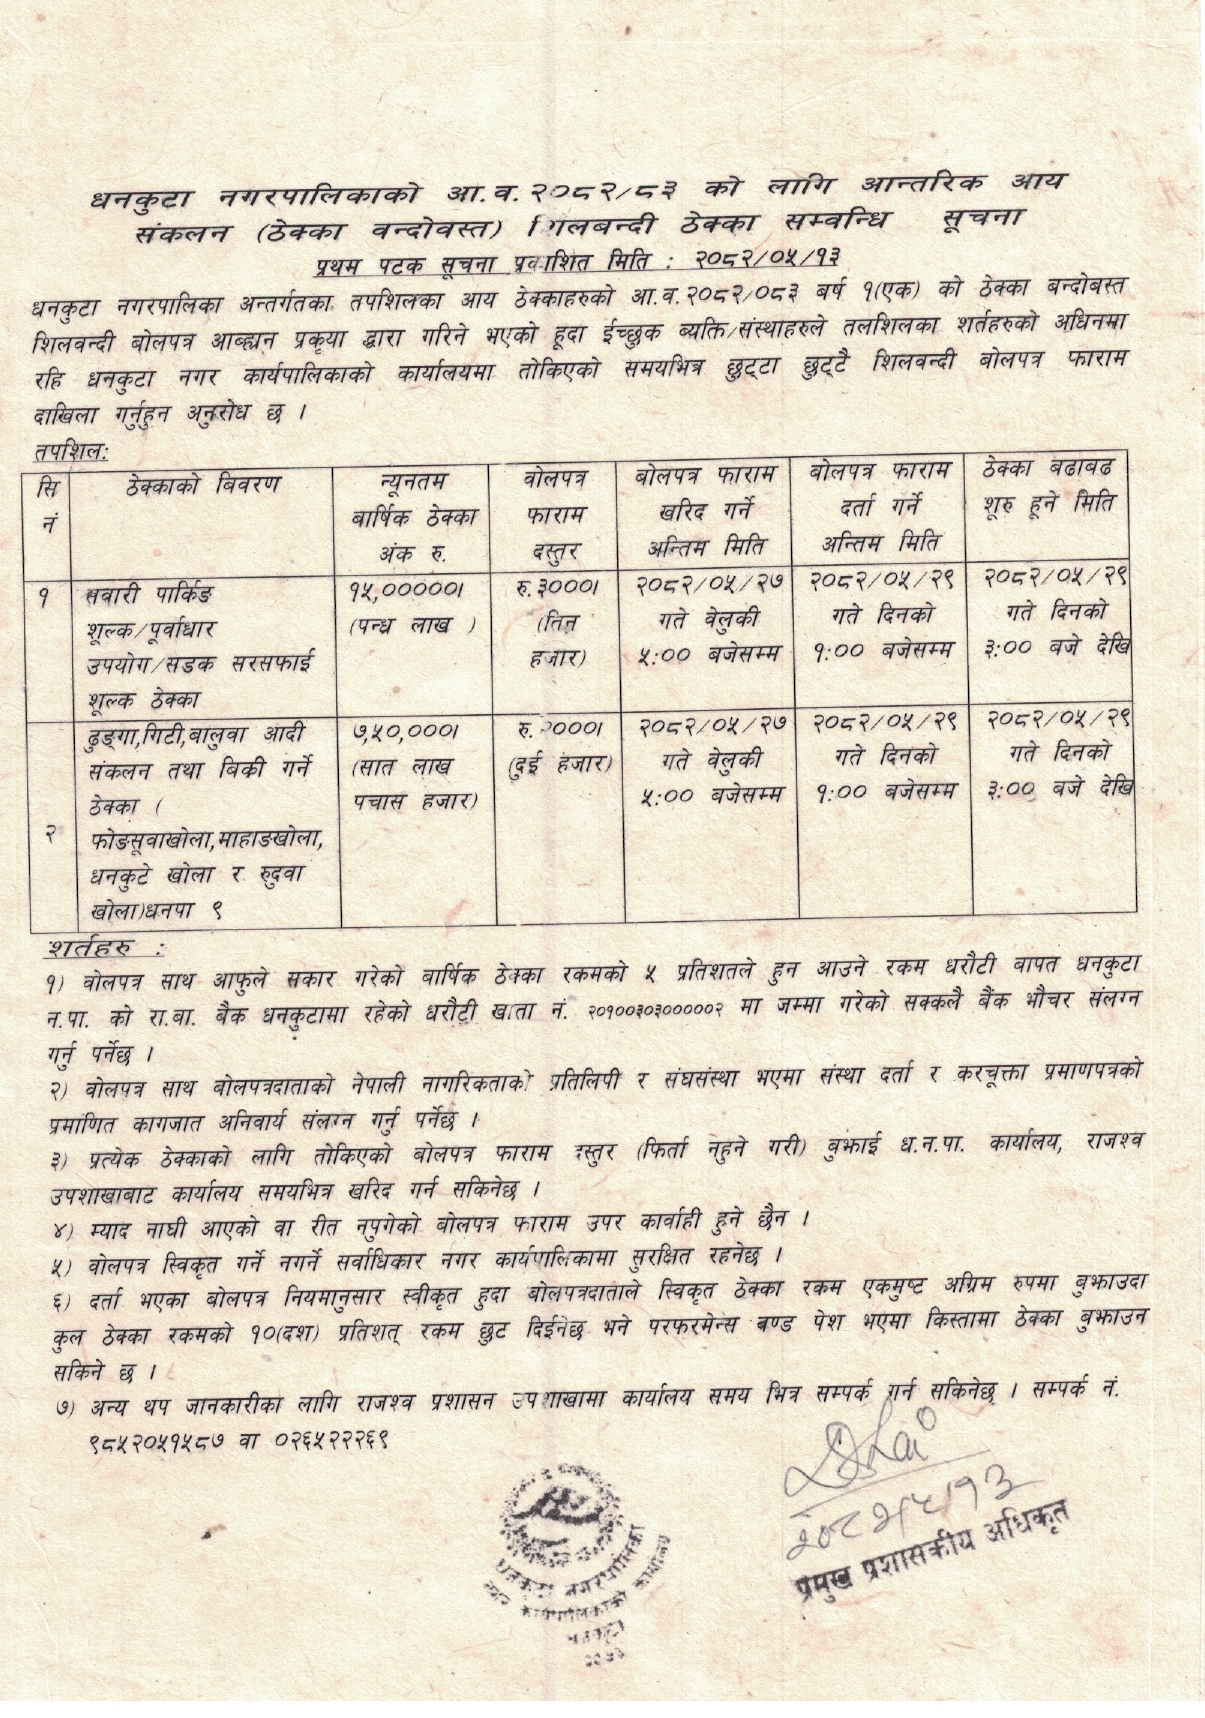 धनकुटा नगरपालिकाको आ.व.२०८२/८३ को लागि आन्तरिक आय
संकलन (ठेक्का वन्दोवस्त) शिलबन्दी ठेक्का सम्वन्धि सूचना
प्रथम पटक सूचना प्रकाशित मिति : २०८२/०५/१३
धनकुटा नगरपालिका अन्तर्गतका तपशिलका आय ठेक्काहरुको आ.व.२०८२/०८३ बर्ष १(एक) को ठेक्का बन्दोबस्त
शिलवन्दी बोलपत्र आब्ह्मन प्रकृया द्वारा गरिने भएको हूदा ईच्छुक ब्यक्ति/संस्थाहरुले तलशिलका शर्तहरुको अधिनमा
रहि धनकुटा नगर कार्यपालिकाको कार्यालयमा तोकिएको समयभित्र छुट्टा छुट्टै शिलवन्दी बोलपत्र फाराम
दाखिला गर्नुहुन अनुरोध छ ।
तपशिल:
सि नं ठेक्काको बिवरण न्यूनतम बार्षिक ठेक्का अंक रु. वोलपत्र फाराम दस्तुर बोलपत्र फाराम खरिद गर्ने अन्तिम मिति बोलपत्र फाराम दर्ता गर्ने अन्तिम मिति ठेक्का बढाबढ शूरु हूने मिति
१ सवारी पार्किङ १५,०००००। रु.३०००। २०८२/०५/२७ २०८२/०५/२९ २०८२/०५/२९
शूल्क/पूर्वाधार (पन्ध्र लाख ) (तिन गते वेलुकी गते दिनको गते दिनको
उपयोग/सडक सरसफाई हजार) ५:०० बजेसम्म १:०० बजेसम्म ३:०० बजे देखि
शूल्क ठेक्का
ढुङ्गा,गिटी,बालुवा आदी ७,५०,०००। रु.२०००। २०८२/०५/२७ २०८२/०५/२९ २०८२/०५/२९
संकलन तथा बिकी गर्ने (सात लाख (दुई हजार) गते वेलुकी गते दिनको गते दिनको
ठेक्का ( पचास हजार) ५:०० बजेसम्म १:०० बजेसम्म ३:०० बजे देखि
२ फोङसूवाखोला,माहाङखोला,
धनकुटे खोला र रुदुवा
खोला)धनपा ९
शर्तहरु :
१) वोलपत्र साथ आफुले सकार गरेको वार्षिक ठेक्का रकमको ५ प्रतिशतले हुन आउने रकम धरौटी बापत धनकुटा
न.पा. को रा.बा. बैक धनकुटामा रहेको धरौटी खाता नं. २०१००३०३०००००२ मा जम्मा गरेको सक्कलै बैंक भौचर संलग्न
गर्नु पर्नेछ ।
२) वोलपत्र साथ बोलपत्रदाताको नेपाली नागरिकताको प्रतिलिपी र संघसंस्था भएमा संस्था दर्ता र करचूक्ता प्रमाणपत्रको
प्रमाणित कागजात अनिवार्य संलग्न गर्नु पर्नेछ ।
३) प्रत्येक ठेक्काको लागि तोकिएको बोलपत्र फाराम दस्तुर (फिर्ता नहुने गरी) बुझाई ध.न.पा. कार्यालय, राजश्व
उपशाखाबाट कार्यालय समयभित्र खरिद गर्न सकिनेछ ।
४) म्याद नाघी आएको वा रीत नपुगेको बोलपत्र फाराम उपर कार्वाही हुने छैन ।
५) वोलपत्र स्विकृत गर्ने नगर्ने सर्वाधिकार नगर कार्यपालिकामा सुरक्षित रहनेछ ।
६) दर्ता भएका बोलपत्र नियमानुसार स्वीकृत हुदा बोलपत्रदाताले स्विकृत ठेक्का रकम एकमुष्ट अग्रिम रुपमा बुझाउदा
कुल ठेक्का रकमको १०(दश) प्रतिशत् रकम छुट दिईनेछ भने परफरमेन्स बण्ड पेश भएमा किस्तामा ठेक्का बुझाउन
सकिने छ ।
७) अन्य थप जानकारीका लागि राजश्व प्रशासन उपशाखामा कार्यालय समय भित्र सम्पर्क गर्न सकिनेछ । सम्पर्क नं.
९८५२०५१५८७ वा ०२६५२२२६९
२०८२/५/१३
प्रमुख प्रशासकीय अधिकृत
धनकुटा नगरपालिका
नगर कार्यपालिकाको कार्यालय
धनकुटा